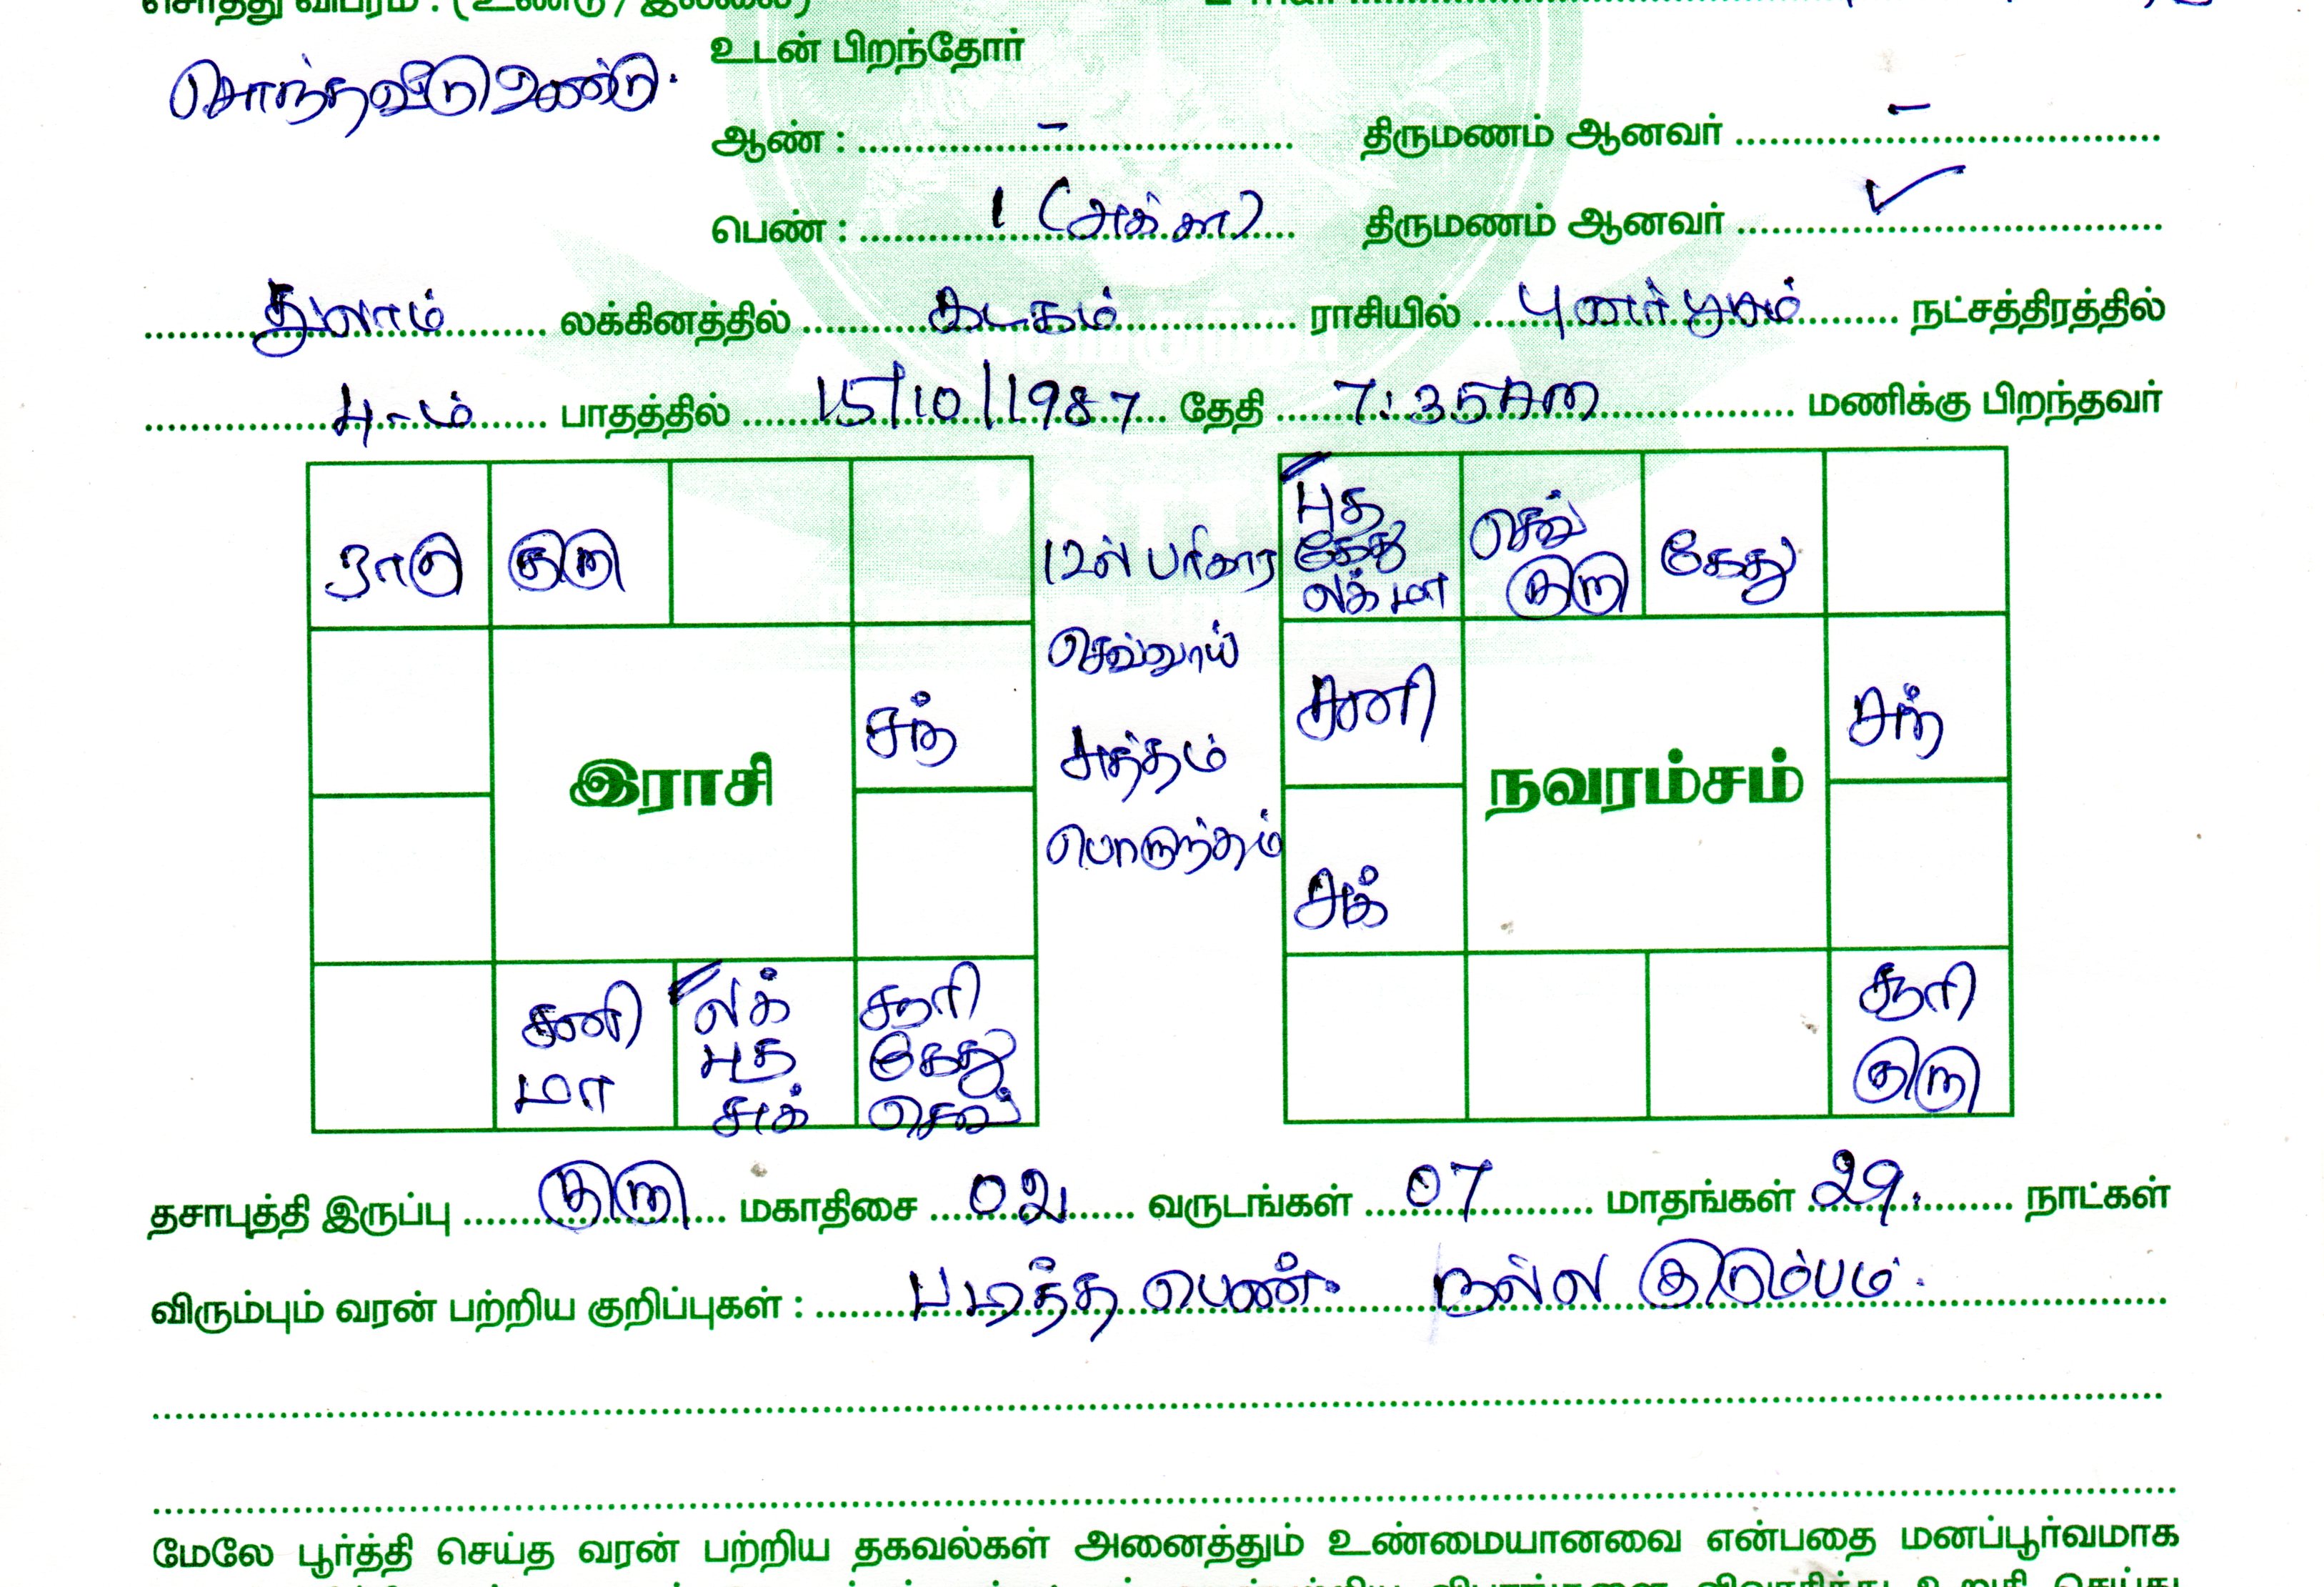 சொத்து விபரம் : (உண்டு / இல்லை)
E-mail
உடன் பிறந்தோர்
சொந்தவீடு உண்டு.
ஆண் : - திருமணம் ஆனவர் -
பெண் : 1 (அக்கா) திருமணம் ஆனவர் ✓
துலாம் லக்கினத்தில் கடகம் ராசியில் புனர்பூசம் நட்சத்திரத்தில்
4-ம் பாதத்தில் 15/10/1987 தேதி 7:35AM மணிக்கு பிறந்தவர்
ராகு குரு
சந்
இராசி
சனி மா
லக் புத சுக்
சூரி கேது செவ்
12ல் பரிகார
செவ்வாய்
சுத்தம்
பொருந்தம்
புத கேது லக் மா
செவ் குரு
கேது
சனி
சந்
நவரம்சம்
சுக்
சூரி
குரு
தசாபுத்தி இருப்பு குரு மகாதிசை 02 வருடங்கள் 07 மாதங்கள் 29 நாட்கள்
விரும்பும் வரன் பற்றிய குறிப்புகள் : படித்த பெண். நல்ல குடும்பம்.
மேலே பூர்த்தி செய்த வரன் பற்றிய தகவல்கள் அனைத்தும் உண்மையானவை என்பதை மனப்பூர்வமாக